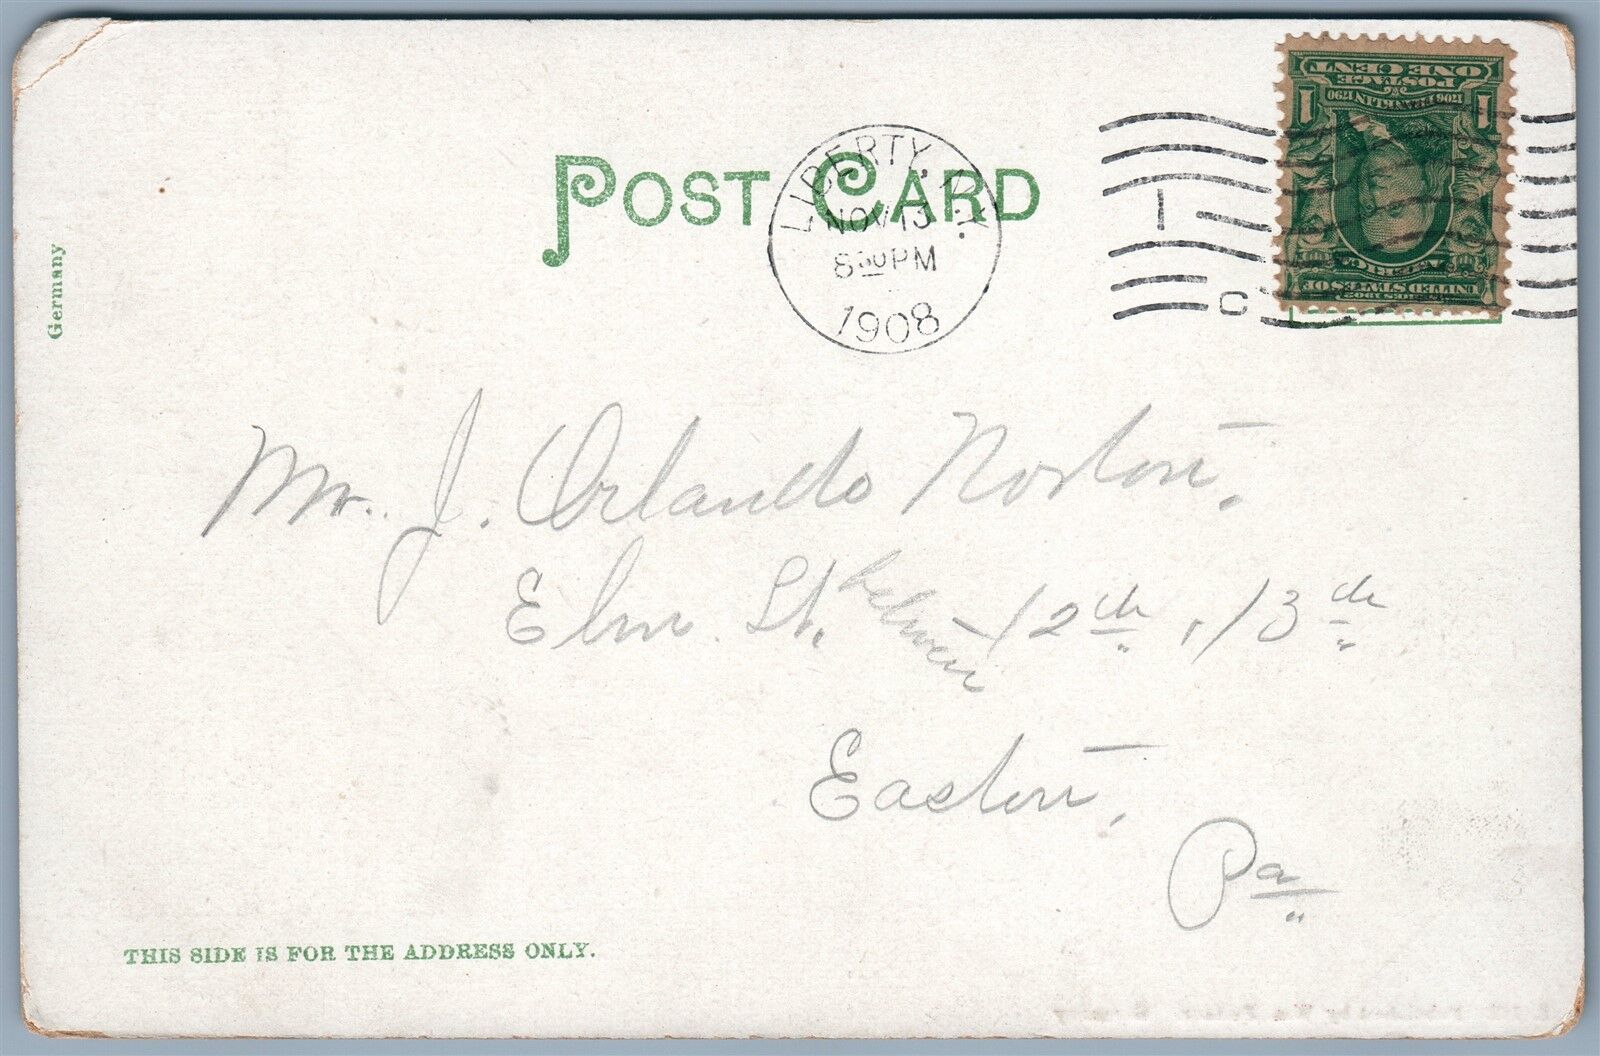 POST CARD
LIBERTY, N.Y.
NOV 13
8 30 PM
1908
1
C
ONE CENT
POSTAGE
1706 FRANKLIN 1790
1 1
SERIES 1902
UNITED STATES OF
AMERICA
Germany
Mr. J. Orlando Norton,
Elm St. between 12th, 13th
Easton,
Pa
THIS SIDE IS FOR THE ADDRESS ONLY.